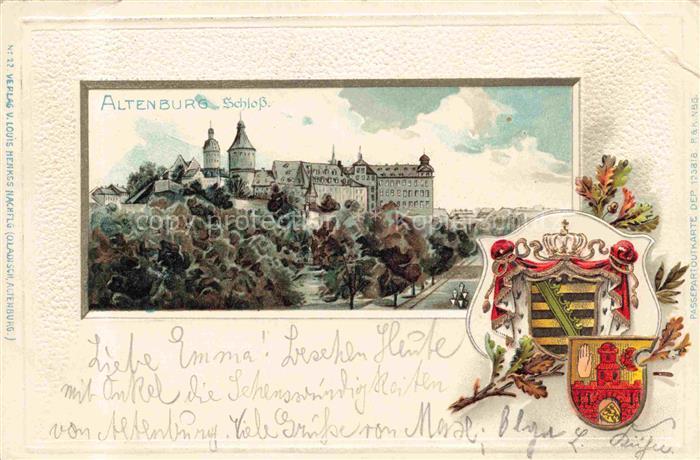 ALTENBURG Schloß.
No 27 VERLAG V. LOUIS HENKSS NACHFLG (O. LADISCH, ALTENBURG.)
PASSEPARTOUTKARTE DEP. 133878. P. & K. N.
copy protection
Liebe Emma! Besehen Heute
mit Onkel die Sehenswürdigkeiten
von Altenburg. Viele Grüße von
Olga